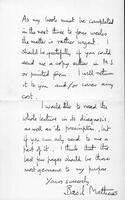 As my book must be completed
in the next three to four weeks,
the matter is rather urgent
should be grateful if you could
send me a copy either in M.S.
or printed form. I will return
it to you and/or cover any
cost.
I would like to read the
whole lecture in its diagnosis,
as well as its prescription, but
if you can only send to me a
part of it, I think that the
last few pages should be those
most germane to my purpose.
Yours sincerely,
Basil Mathews